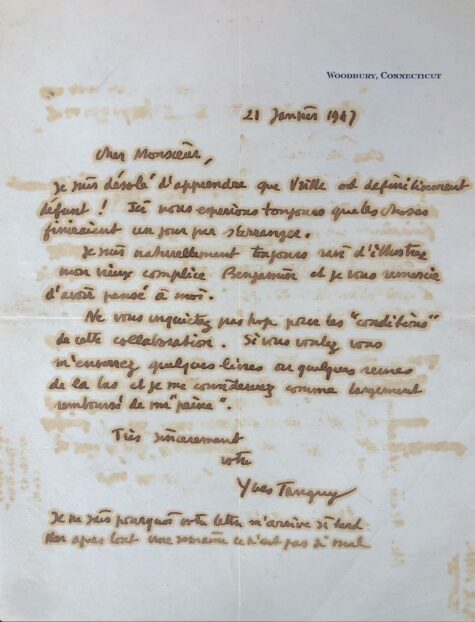 WOODBURY, CONNECTICUT
21 Janvier 1947
Cher Monsieur,
Je suis désolé d'apprendre que VRILLE est définitivement
défunt ! Ici nous esperions toujours que les choses
finiraient un jour par s'arranger.
Je suis naturellement toujours ravi d'illustrer
mon vieux complice Benjamin et je vous remercie
d'avoir pensé à moi.
Ne vous inquietez pas trop pour les "conditions"
de cette collaboration. Si vous voulez vous
m'enverrez quelques livres ou quelques revues
de là bas et je me considererez comme largement
remboursé de ma "peine".
Très sincerement
votre
Yves Tanguy
Je ne sais pourquoi votre lettre m'arrive si tard
apres tout une semaine ce n'est pas si mal